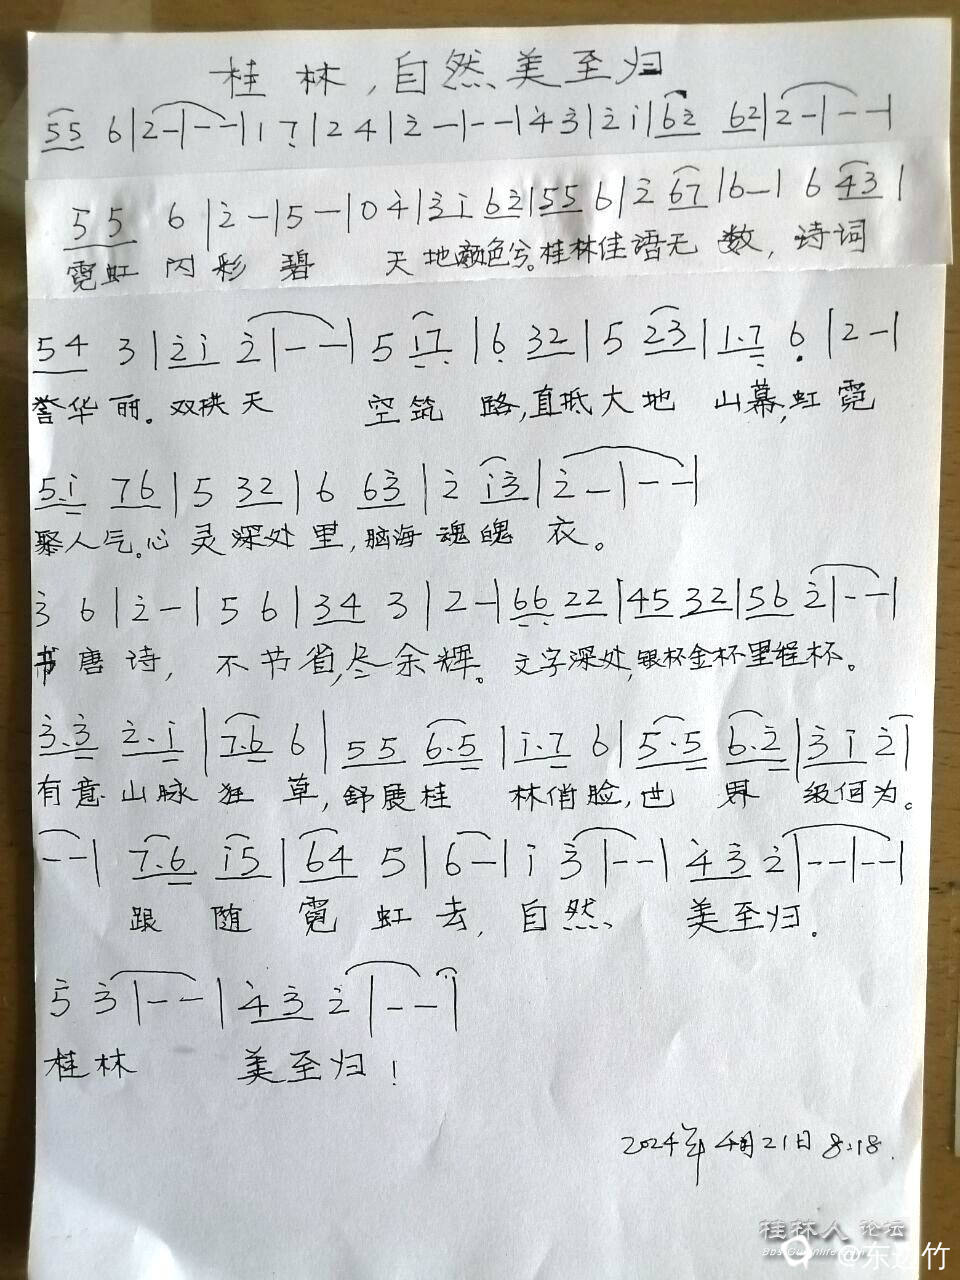 桂林,自然美至归
55 6|2-|--|1 7|2 4|2-|--|43|21|62 62|2-|--|
55 6|2-|5-|0 4|31 62|55 6|2 67|6-|6 43|
霓虹闪彩碧 天地颜色兮。桂林佳语无数,诗词
54 3|21 2|--|5 17|6 32|5 23|1.7 6|2-|
誉华丽。双拱天 空筑路,直抵大地山幕,虹霓
5.1 76|5 32|6 63|2 13|2-|--|
聚人气。心灵深处里,脑海魂魄衣。
3 6|2-|5 6|34 3|2-|66 22|45 32|56 2|--|
书唐诗,不节省,尽余辉。文字深处,银杯金杯里程杯。
3.3 2.1|7.6 6|55 6.5|1.7 6|5.5 6.2|31 2|
有意山脉狂草,舒展桂林俏脸,世界级何为。
--|7.6 15|64 5|6-|1 3|--|43 2|--|--|
跟随霓虹去,自然美至归。
5 3|--|43 2|--|
桂林 美至归!
2024年4月21日8:18.
桂林人论坛
@东边竹